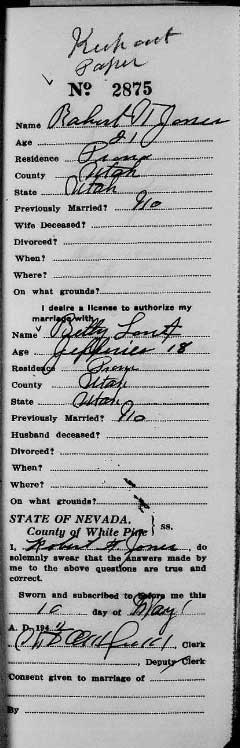 Keep out
Paper
No 2875
Name Robert W Jones
Age 21
Residence Provo
County Utah
State Utah
Previously Married? No
Wife Deceased?
Divorced?
When?
Where?
On what grounds?
I desire a license to authorize my
marriage with
Name Betty
Age Jefferies 18
Residence Provo
County Utah
State Utah
Previously Married? No
Husband deceased?
Divorced?
When?
Where?
On what grounds?
STATE OF NEVADA,
County of White Pine } ss.
I, Robert W. Jones, do
solemnly swear that the Answers made by
me to the above questions are true and
correct.
Sworn and subscribed to before me this
10 day of May
A. D. 194
Clerk
Deputy Clerk
Consent given to marriage of
By